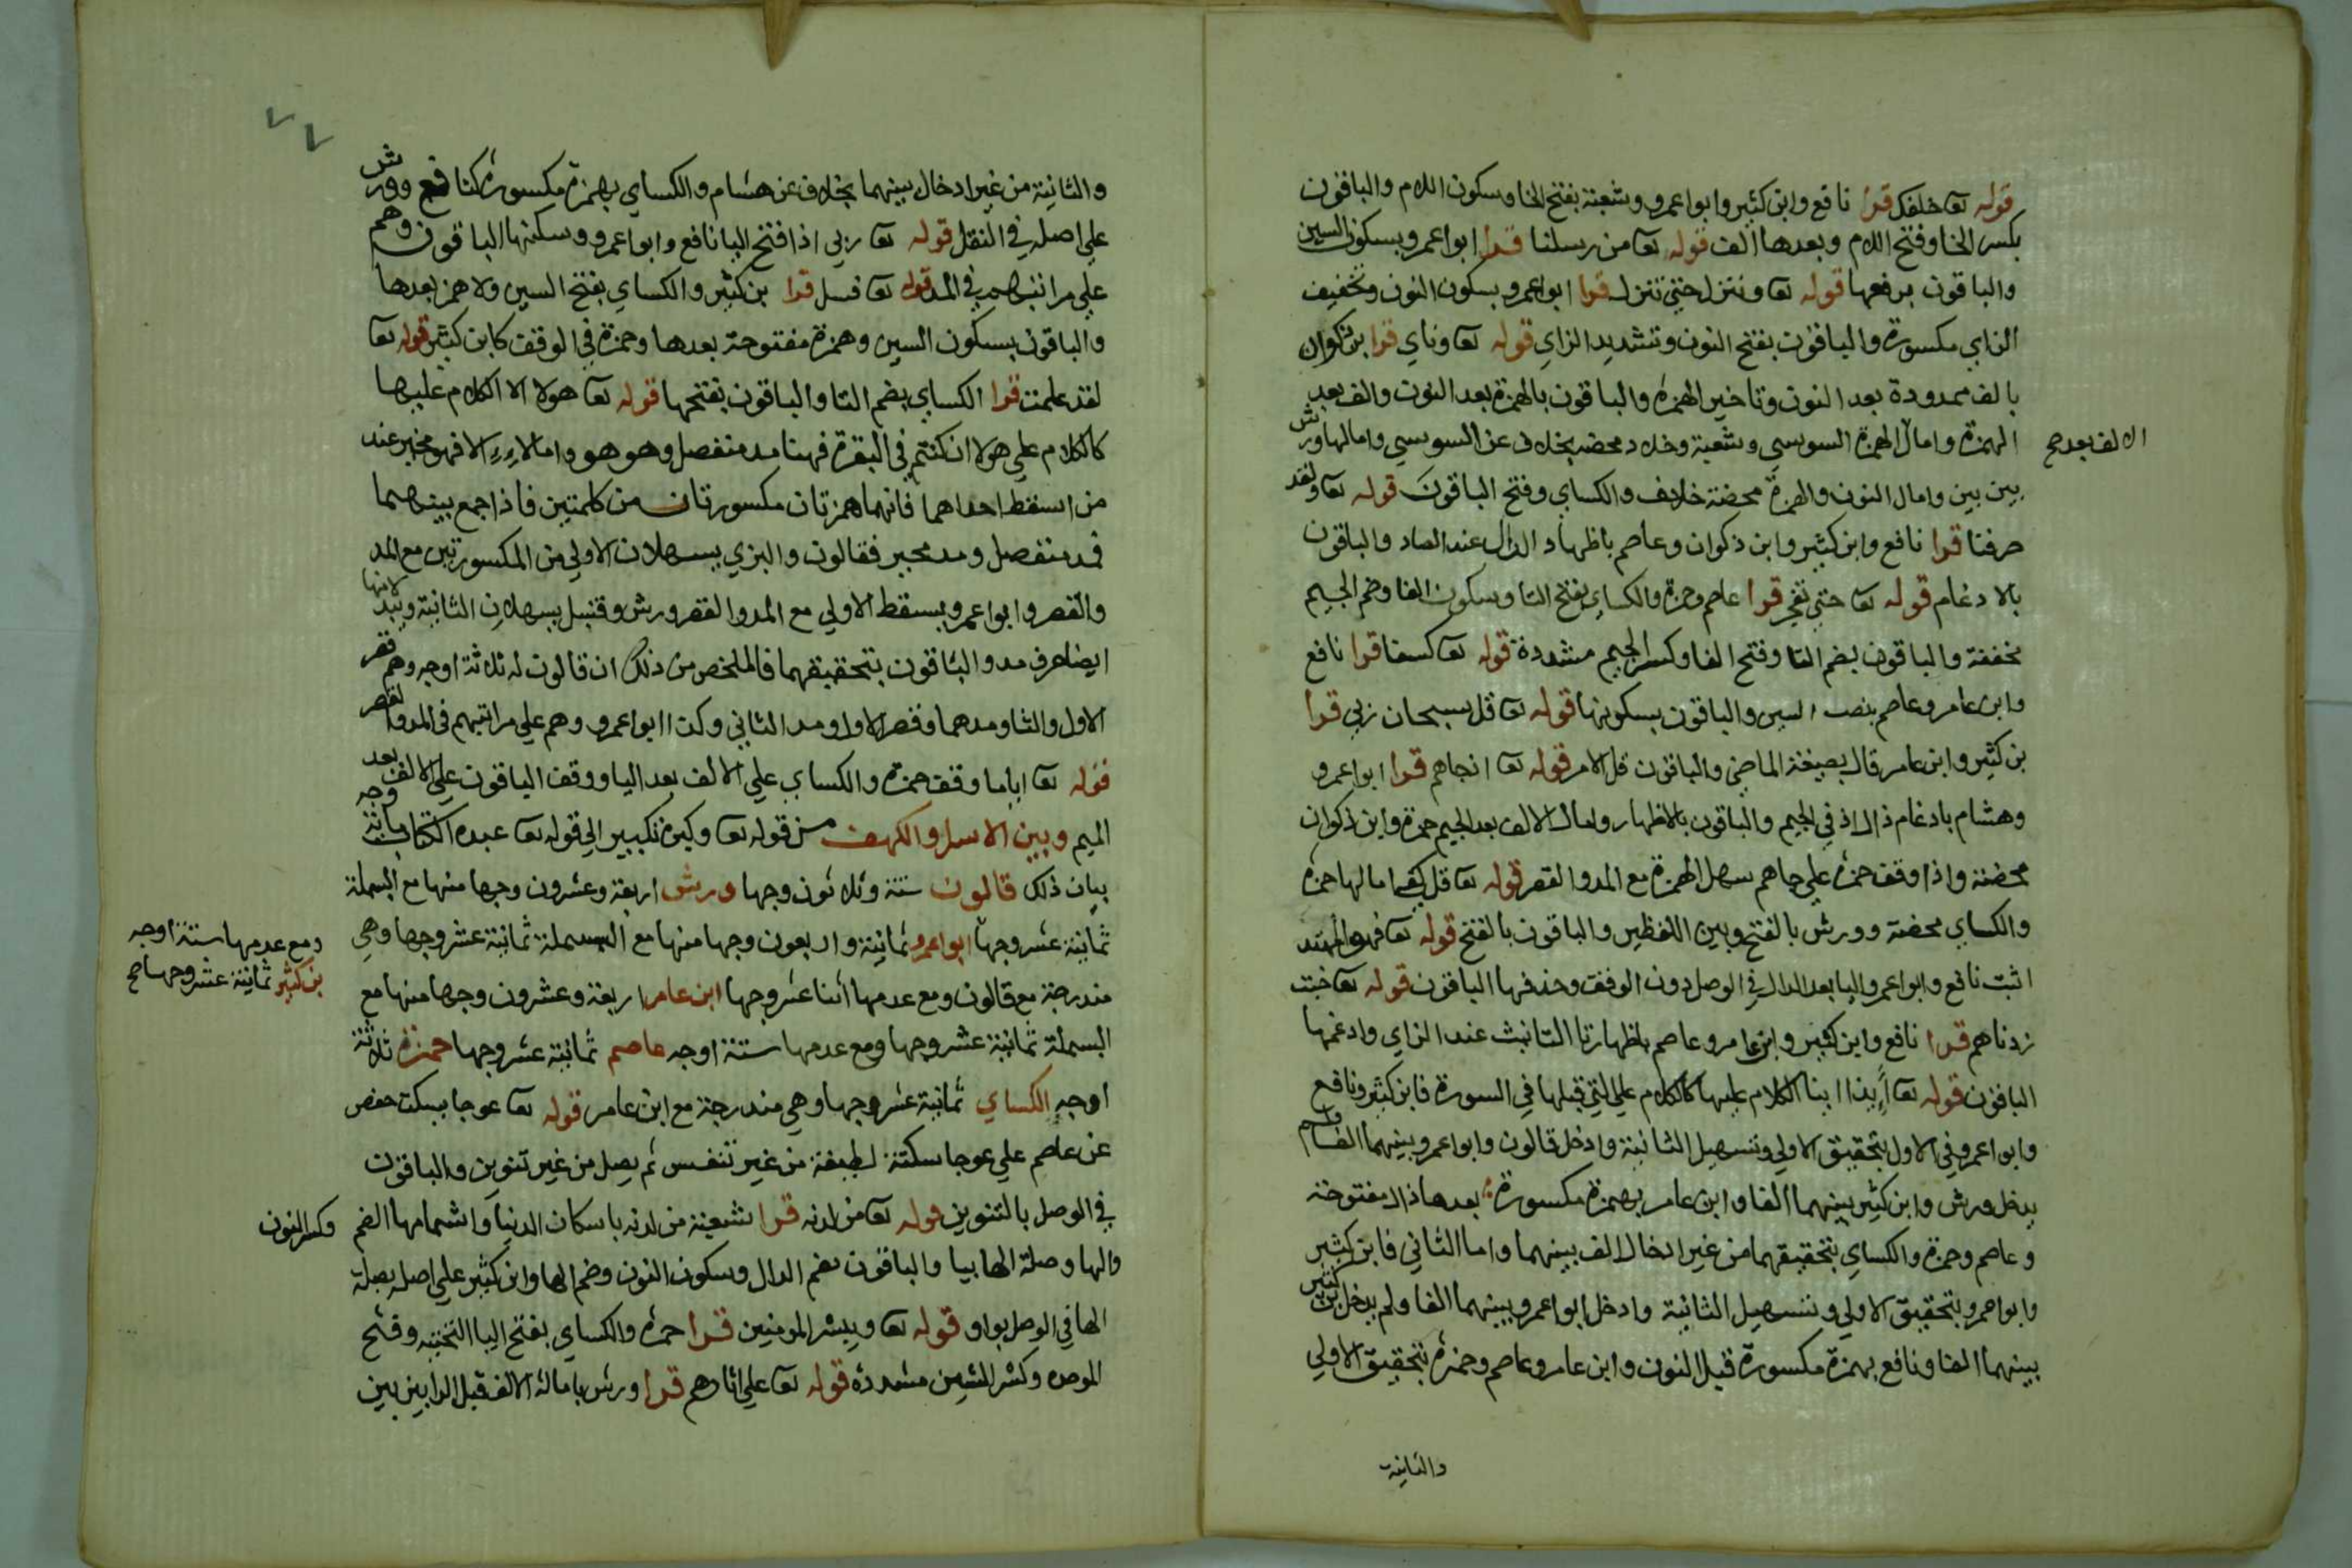 قوله تعا خلفك قرا نافع وابن كثير وابوا عمرو وشعبة بفتح الخا وسكون اللام والباقون
بكسر الخا وفتح اللام وبعدها الف قوله تعا من رسلنا قرا ابوا عمرو بسكون السين
والباقون برفعها قوله تعا وننزل حتي تنزل قرا ابوا عمرو بسكون النون وتخفيف
الزاي مكسورة والباقون بفتح النون وتشديد الزاي قوله تعا وناي قرا بن ذكوان
بالف ممدودة بعد النون وتاخير الهمزة والباقون بالهمزة بعد النون والف بعد
الهمزة وامال الهمزة السوسي وشعبة وخلاد محضه بخلاف عن السوسي وامالها ورش
الالف بعد صح
بين بين وامال النون والهمزة محضة خلف والكساي وفتح الباقون قوله تعا ولقد
صرفنا قرا نافع وابن كثير وابن ذكوان وعاصم باظهار الدال عند الصاد والباقون
بالادغام قوله تعا حتي تفجر قرا عاصم وحمزة والكساي بفتح التا وسكون الفا وضم الجيم
مخففة والباقون بضم التا وفتح الفا وكسر الجيم مشددة قوله تعا كسفا قرا نافع
وابن عامر وعاصم بنصب السين والباقون بسكونها قوله تعا قل سبحان ربي قرا
بن كثير وابن عامر قال بصيغة الماضي والباقون قل الامر قوله تعا اذ جاهم قرا ابوا عمرو
وهشام بادغام ذال اذ في الجيم والباقون بالاظهار وامال الالف بعد الجيم حمزة وابن ذكوان
محضة واذا وقف حمزة علي جاهم سهل الهمزة مع المد والقصر قوله تعا قل كفي امالها حمزة
والكساي محضة وورش بالفتح وبين اللفظين والباقون بالفتح قوله تعا فهو المهتد
اثبت نافع وابوا عمرو اليا بعد الدال في الوصل دون الوقف وحذفها الباقون قوله تعا خبت
زدناهم قرا نافع وابن كثير وابن عامر وعاصم باظهار تا التانيث عند الزاي وادغمها
الباقون قوله تعا أإذا اينا الكلام عليها كالكلام علي التي قبلها في السورة فابن كثير ونافع
وابوا عمرو في الاول بتحقيق الاولي وتسهيل الثانية وادخل قالون وابوا عمرو بينهما الفا ولم
يدخل ورش وابن كثير بينهما الفا وابن عامر بهمزة مكسورة بعدها ذال مفتوحة
وعاصم وحمزة والكساي بتحقيقهما من غير ادخال الف بينهما واما الثاني فابن كثير
وابوا عمرو بتحقيق الاولي وتسهيل الثانية وادخل ابوا عمرو بينهما الفا ولم يدخل بن كثير
بينهما الفا ونافع بهمزة مكسورة قبل النون وابن عامر وعاصم وحمزة بتحقيق الاولي
والثانية
٧٧
والثانية من غير ادخال بينهما بخلاف عن هشام والكساي بهمزة مكسورة كنافع وورش
علي اصله في النقل قوله تعا ربي اذا فتح اليا نافع وابوا عمرو وسكنها الباقون وهم
علي مراتبهم في المد قوله تعا فسل قرا بن كثير والكساي بفتح السين ولا همز بعدها
والباقون بسكون السين وهمزة مفتوحة بعدها وحمزة في الوقف كابن كثير قوله تعا
لقد علمت قرا الكساي بضم التا والباقون بفتحها قوله تعا هولا الا الكلام عليها
كالكلام علي هولا ان كنتم في البقرة فهنا مد منفصل وهو هو واما لاءِ الا فهو مخير عند
من اسقط احداهما فانهما همزتان مكسورتان من كلمتين فاذا جمع بينهما
فمد منفصل ومد مخير فقالون والبزي يسهلان الاولي من المكسورتين مع المد
والقصر وابوا عمرو يسقط الاولي مع المد والقصر وورش وقنبل يسهلان الثانية ويبدلانها
ايضا حرف مد والباقون بتحقيقهما فالملخص من ذلك ان قالون له ثلاثة اوجه وهم قصر
الاول والثا ومدهما وقصر الاول ومد الثاني وكذا ابوا عمرو وهم علي مراتبهم في المد والقصر
قوله تعا اياما وقف حمزة والكساي علي الالف بعد اليا ووقف الباقون علي الالف بعد
الميم وبين الاسرا والكهف من قوله تعا وكبره تكبيرا الي قوله تعا عبده الكتاب مائة وجه
بيان ذلك قالون ستة وثلاثون وجها ورش اربعة وعشرون وجها منها مع البسملة
ثمانية عشر وجها ابوا عمرو ثمانية واربعون وجها منها مع البسملة ثمانية عشر وجها وهي
ومع عدمها ستة اوجه
بن كثير ثمانية عشر وجها صح
مندرجة مع قالون ومع عدمها اثنا عشر وجها ابن عامر اربعة وعشرون وجها منها مع
البسملة ثمانية عشر وجها ومع عدمها ستة اوجه عاصم ثمانية عشر وجها حمزة ثلاثة
اوجه الكساي ثمانية عشر وجها وهي مندرجة مع ابن عامر قوله تعا عوجا بسكت حفص
عن عاصم علي عوجا سكتة لطيفة من غير تنفس ثم يصل من غير تنوين والباقون
في الوصل بالتنوين قوله تعا من لدنه قرا شعبة من لدنه باسكان الدال واشمامها الضم
وكسر النون
والها وصلة الها بيا والباقون بضم الدال وسكون النون وضم الها وابن كثير علي اصله بصلة
الها في الوصل بواو قوله تعا ويبشر المومنين قرا حمزة والكساي بفتح اليا التحتية وفتح
الموحده وكسر الشين مشددة قوله تعا علي اثارهم قرا ورش بامالة الالف قبل الرا بين بين